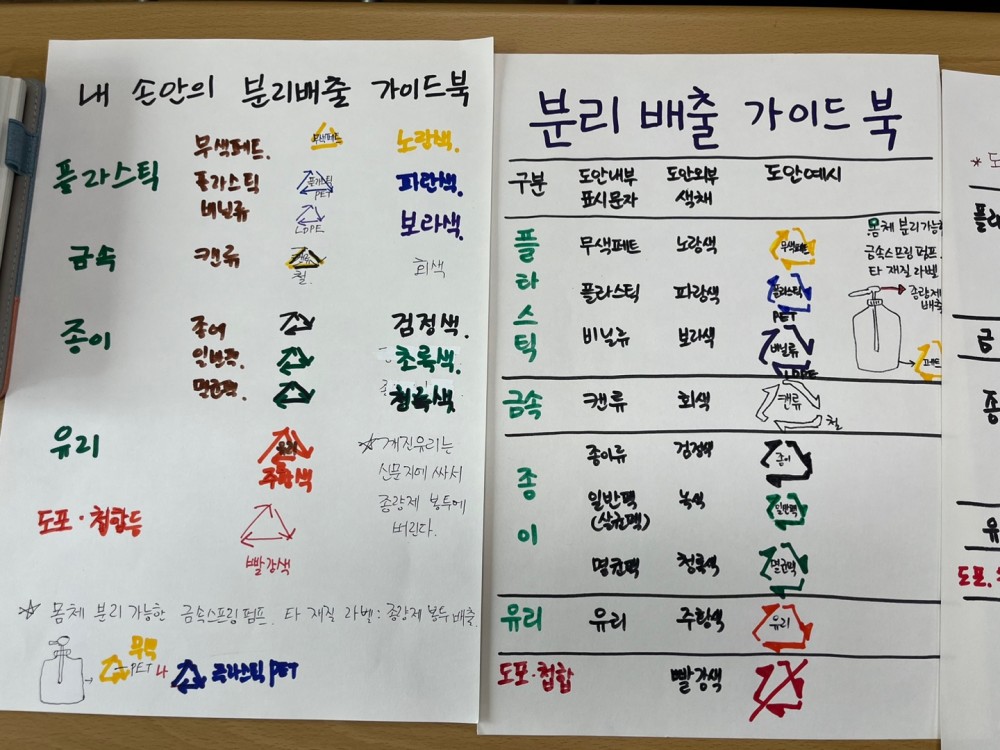 내 손안의 분리배출 가이드북
플라스틱 무색페트. 무색페트 노랑색.
플라스틱 플라스틱 PET 파란색.
비닐류 LDPE 보라색.
금속 캔류 캔류 철 회색
종이 종이 검정색.
일반팩. 초록색.
멸균팩. 청록색
유리 유리 주황색
☆ 깨진유리는
신문지에 싸서
종량제 봉투에
버린다.
도포·첩합등 빨강색
☆ 몸체 분리 가능한 금속스프링 펌프. 타 재질 라벨 : 종량제 봉투 배출.
무색 PET 나 플라스틱 PET
분리 배출 가이드 북
구분 도안내부 표시문자 도안외부 색채 도안예시
플라스틱
무색페트 노랑색 무색페트
플라스틱 파랑색 플라스틱 PET
비닐류 보라색 비닐류 LDPE
몸체 분리가능한
금속스프링 펌프.
타 재질 라벨
종량제
배출
페트
금속 캔류 회색 캔류 철
종이
종이류 검정색 종이
일반팩 (살균팩) 녹색 일반팩
멸균팩 청록색 멸균팩
유리 유리 주황색 유리
도포·첩합 빨강색
* 도
플라
금
종
유
도포·